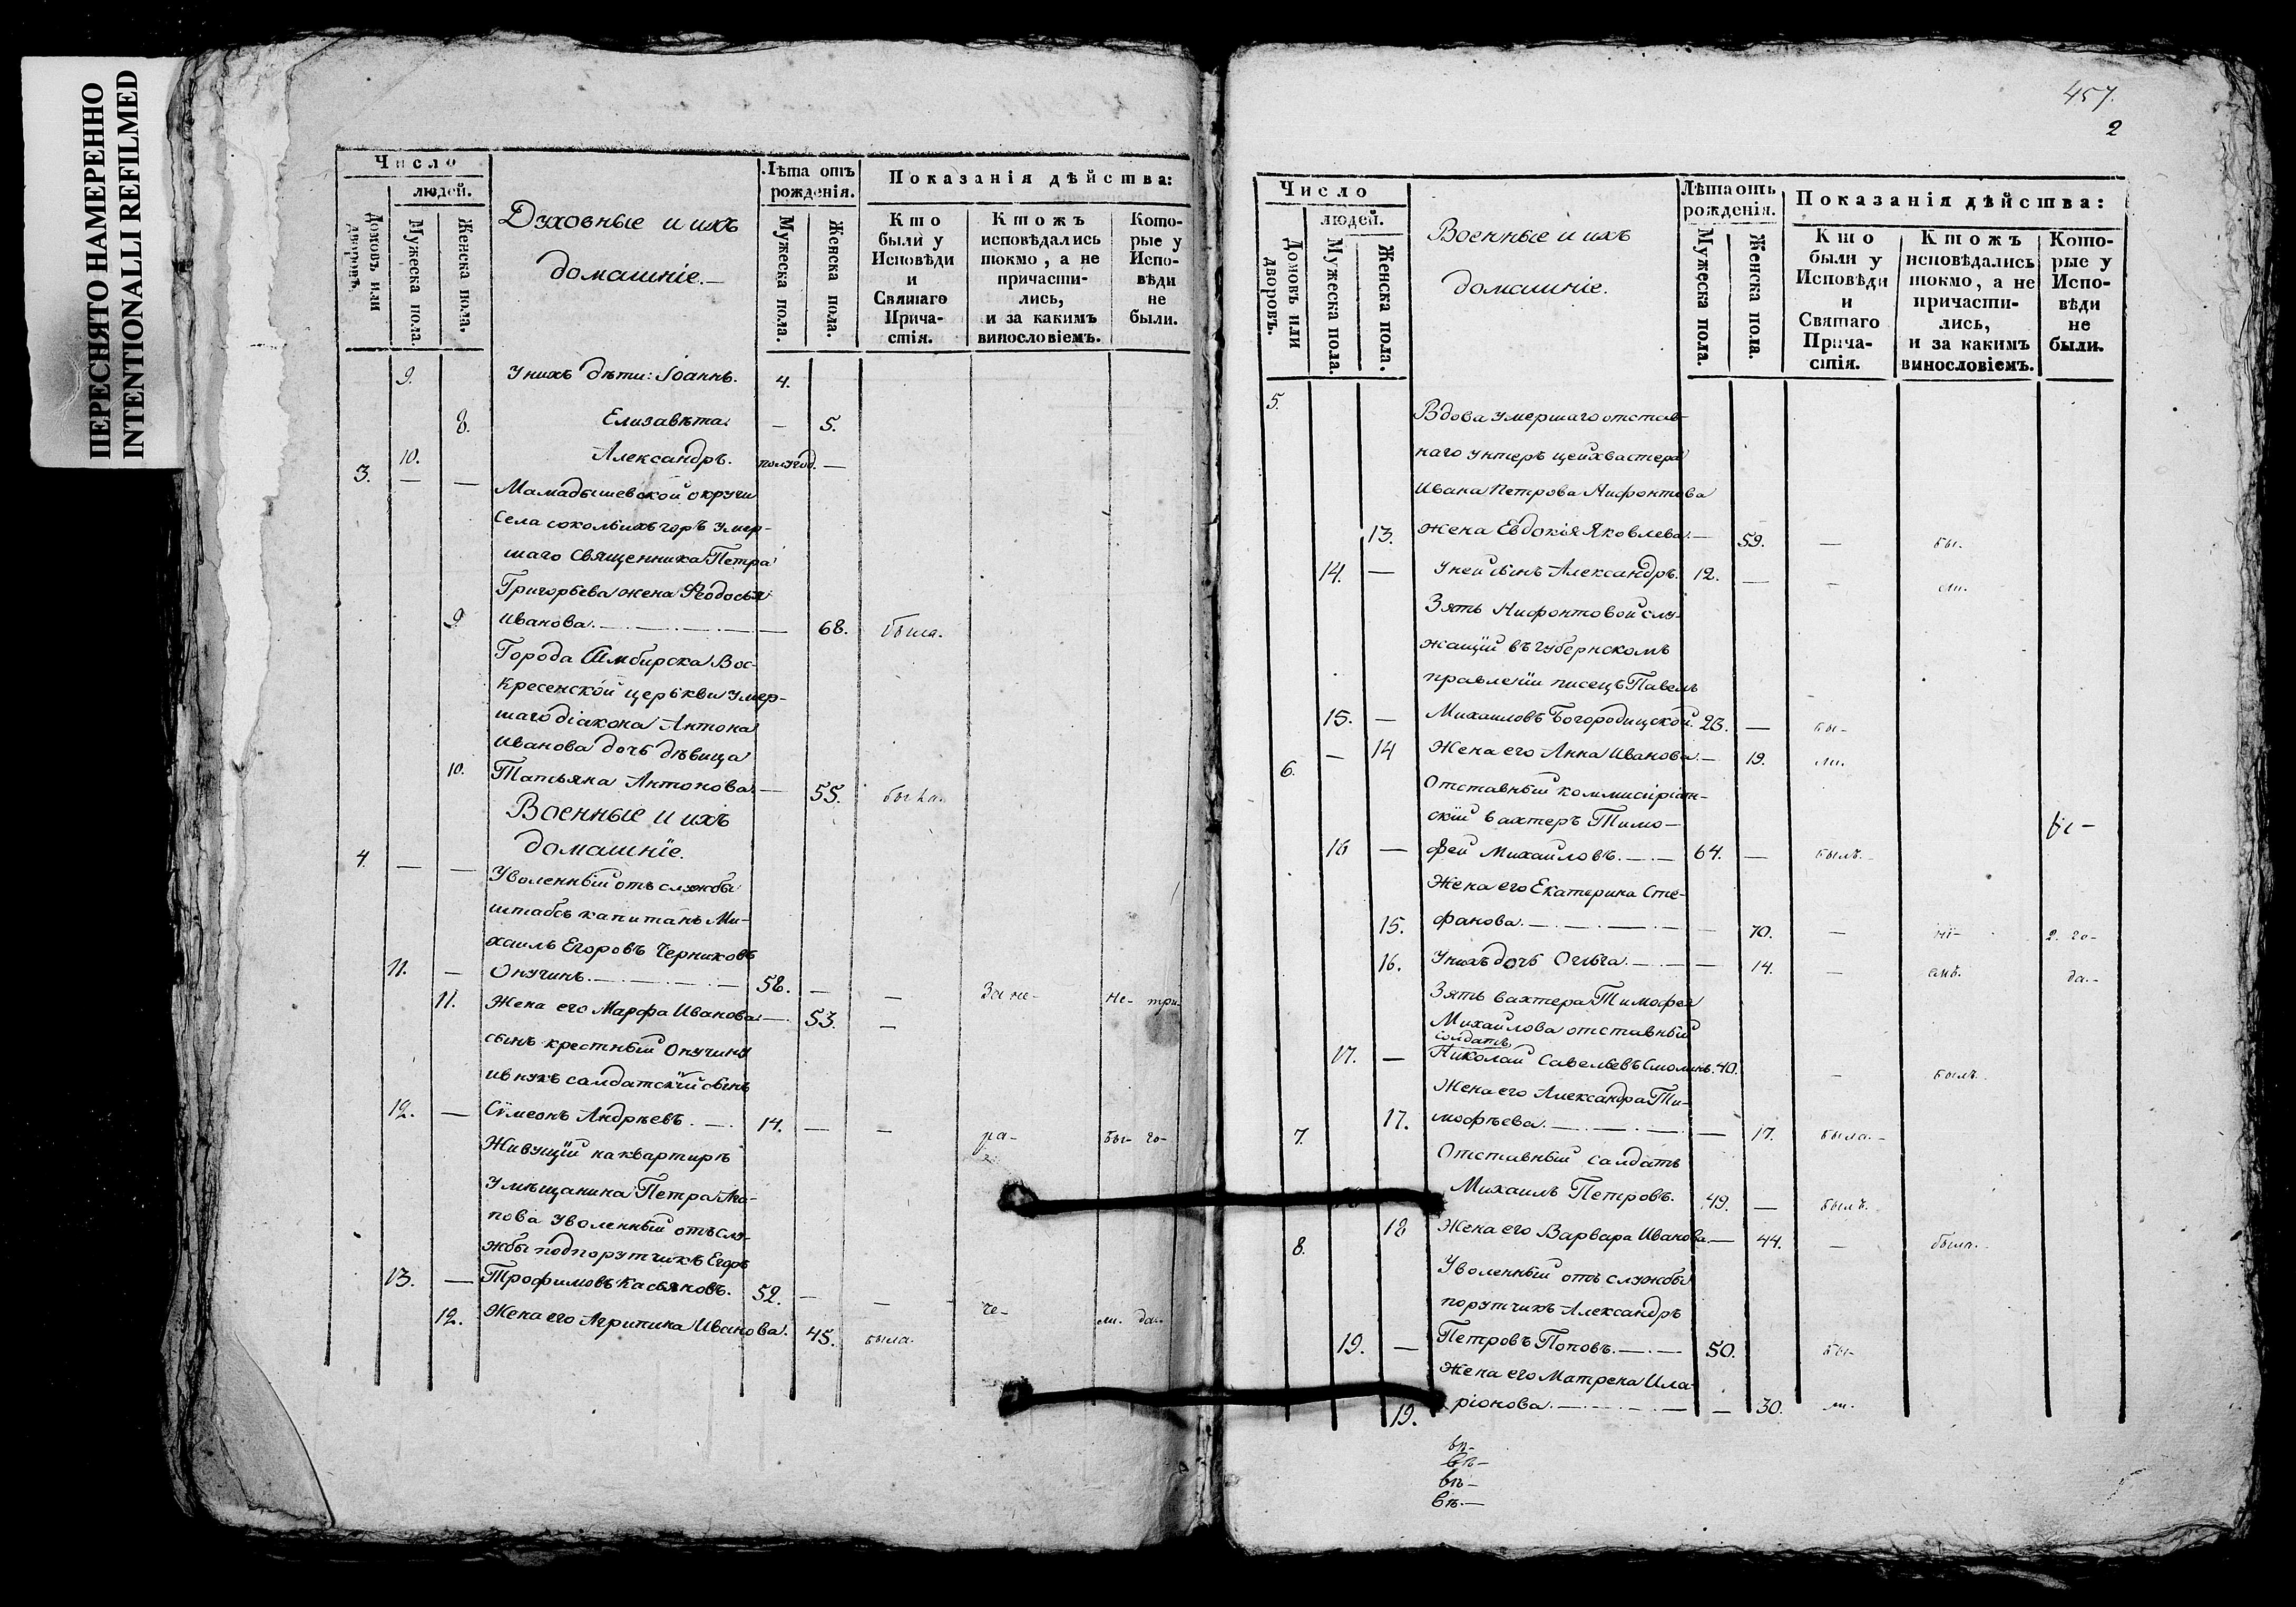 ПЕРЕСНЯТО НАМЕРЕННО
INTENTIONALLI REFILMED
Число
людей.
Домовъ или дворовъ.
Мужеска пола.
Женска пола.
Духовные и ихъ
домашніе.—
Лѣта отъ рожденія.
Мужеска пола.
Женска пола.
Показанія дѣйства:
Кто были у Исповѣди и Святаго Прича-стія.
Ктожъ исповѣдались токмо, а не причасти-лись, и за какимъ винословіемъ.
Кото-рые у Испо-вѣди не были.
9. У нихъ дѣти: Іоаннъ. 4.
8. Елизавѣта. — 5.
10. Александръ. полугод. —
3. — — Мамадышевской округи
Села сокольихъ горъ умер-
шаго Священника Петра
Григорьева жена Ѳедосья
9 Иванова. — 68. была.
Города Симбирска Вос-
кресенской церькви умер-
шаго діакона Антона
Иванова дочь дѣвица
10. Татьяна Антонова. — 55. была.
Военные и ихъ
домашніе.
4. — — Уволенный отъ службы
штабсъ капитанъ Ми-
хаилъ Егоровъ Черниковъ
11. — Онучинъ. — 58. — —
11. Жена его Марфа Иванова. — 53. — За не- не- три-
сынъ крестный Онучину
и внукъ салдатскій сынъ
12. — Сѵмеонъ Андреевъ. — 14. — — ра- бы- го-
Живущій на квартирѣ
у мѣщанина Петра Ага-
пова уволенный отъ слу-
жбы подпорутчикъ Егоръ
13. — Трофимовъ Касьяновъ. 52. — — че- ли. да.
12. Жена его Агрипина Иванова. 45. была.
457.
2
Число
людей.
Домовъ или дворовъ.
Мужеска пола.
Женска пола.
Военные и ихъ
домашніе.
Лѣта отъ рожденія.
Мужеска пола.
Женска пола.
Показанія дѣйства:
Кто были у Исповѣди и Святаго Прича-стія.
Ктожъ исповѣдались токмо, а не причасти-лись, и за какимъ винословіемъ.
Кото-рые у Испо-вѣди не были.
5.
Вдова умершаго отстав-
наго унтеръ цейхвастера
Ивана Петрова Нифонтова
13. жена Евдокія Яковлева. — 59. — бы.
14. — У ней сынъ Александръ. 12. — — ли.
Зять Нифонтовой слу-
жащій въ губернскомъ
правленіи писецъ Павелъ
15. — Михаиловъ Богородицской. 23. — бы-
— 14 Жена его Анна Иванова. — 19. ли.
6.
Отставный коммисаріат-
скій вахтеръ Тимо-
16 — фей Михайловъ. — 64. — былъ.
Жена его Екатерина Сте-
15. фанова. — 70. — 2. го-
16. У нихъ дочь Ольга. — 14. — да.-
Зять вахтера Тимофея
Михайлова отставный
солдатъ
17. — Николай Савельевъ Смолинъ. 40. — былъ.
Жена его Александра Ти-
17. мофѣева. — 17. была.-
7.
Отставный салдатъ
Михаилъ Петровъ. 49. — былъ.
18 Жена его Варвара Иванова. — 44. — была.
8.
Уволенный отъ службы
порутчикъ Александръ
19. — Петровъ Поповъ. — 50. бы-
Жена его Матрена Ила-
19. ріонова. — 30. ли.